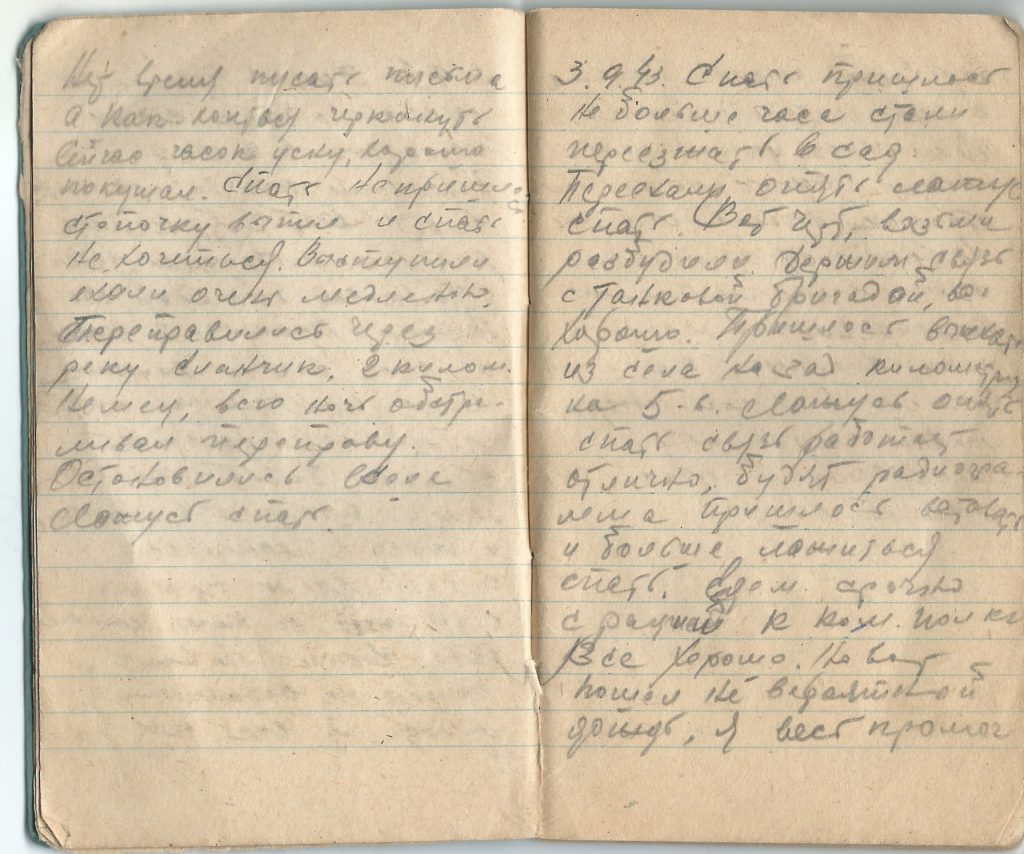 Нет время писать письма
а как хочться черкануть
Сейчас часок усну, хорошо
покушал. Спать не пришлось
стопочку выпил и спать
не хочиться. Выступили
ехали очень медленно,
Переправились через
реку 2 килом.
Немец, всю ночь обстре-
ливал переправу.
Остановились в селе
Ложусь спать.
3.9.43. Спать пришлось
не больше часа стали
переезжать в сад.
Переехали опять ложусь
спать. Вот
разбудили держим связь
с танковой бригадой, все
хорошо. Пришлось выехать
из села назад километра
на 5-ь. Ложусь опять
спать связь работает
отлично, будят радиогра-
мма пришлось вставать
и больше ложиться
спать. Едем срочно
с рацией к ком. полка
Все хорошо. Но вот
пошел не вероятной
дождь, я весь промок